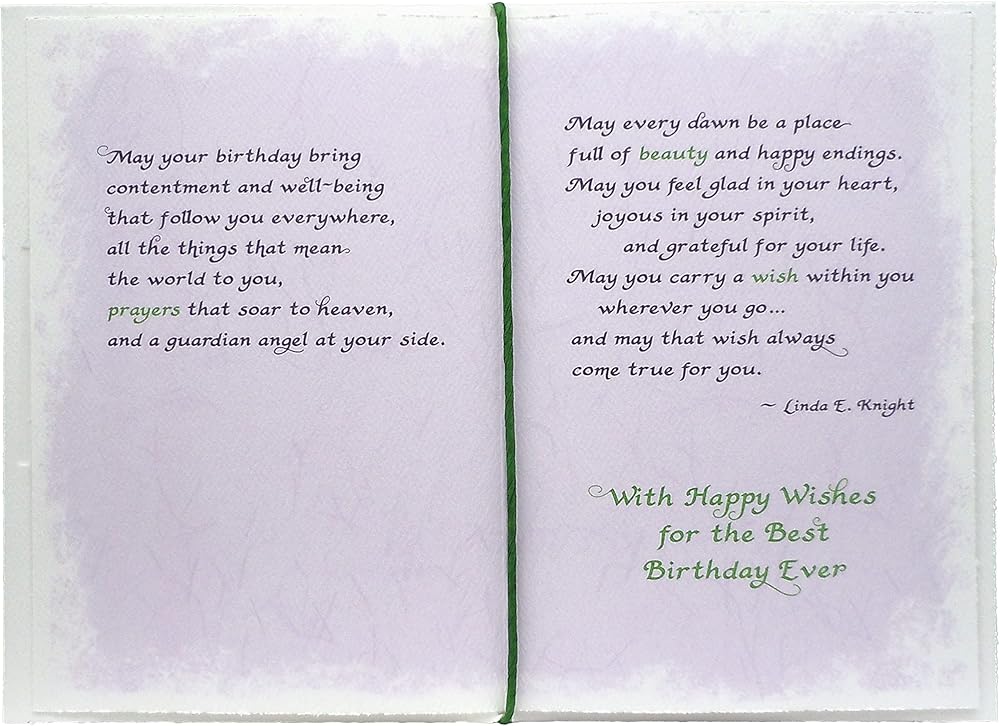 May your birthday bring
contentment and well~being
that follow you everywhere,
all the things that mean
the world to you,
prayers that soar to heaven,
and a guardian angel at your side.
May every dawn be a place
full of beauty and happy endings.
May you feel glad in your heart,
joyous in your spirit,
and grateful for your life.
May you carry a wish within you
wherever you go...
and may that wish always
come true for you.
~ Linda E. Knight
With Happy Wishes
for the Best
Birthday Ever